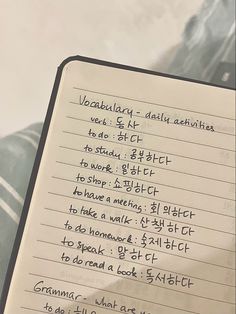 Vocabulary - daily activities
verb : 동사
to do : 하다
to study : 공부하다
to work : 일하다
to shop : 쇼핑하다
to have a meeting : 회의하다
to take a walk : 산책하다
to do homework : 숙제하다
to speak : 말하다
to do read a book : 독서하다
Grammar - what are
to do :